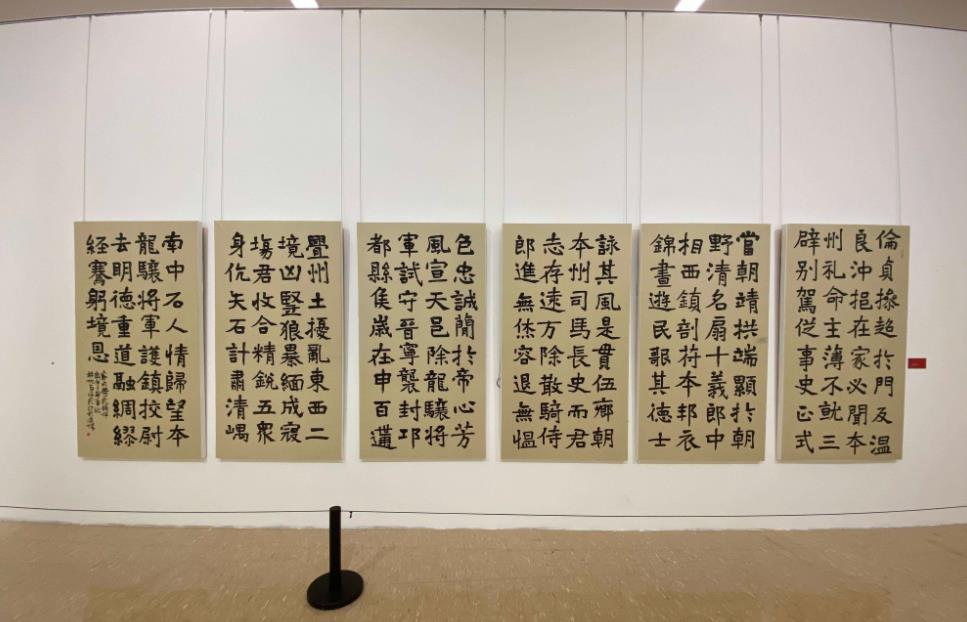 倫貞操超於門及温
良沖挹在家必聞本
州礼命主薄不就三
辟别駕從事史正式
當朝靖拱端顯於朝
野清名扇十義郎中
相西鎮剖符本邦衣
錦畫遊民歌其德士
詠其風是貫伍鄉朝
本州司馬長史而君
志存遠方除散騎侍
郎進無烋容退無愠
色忠誠簡於帝心芳
風宣天邑除龍驤將
軍試守晉寧襲封邛
都縣侯歲在申百遘
舋州土擾亂東西二
境凶豎狼暴緬成寇
塲君收合精銳五衆
身伉矢石計肅清嵎
南中石人情歸望本
龍驤將軍護鎮挍尉
去明德重道融綢繆
経騫躬境恩